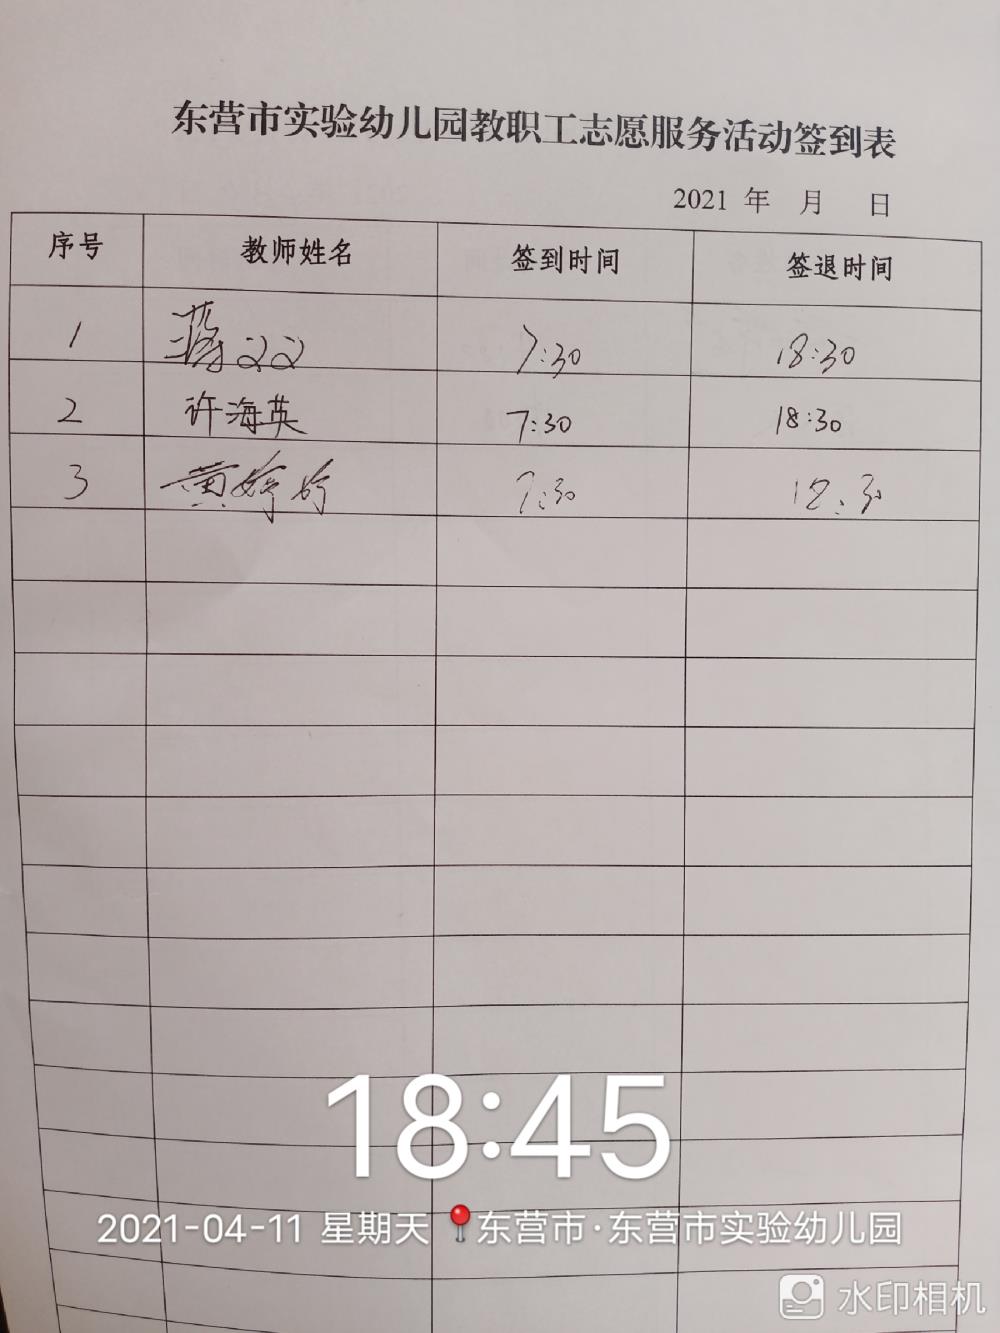 东营市实验幼儿园教职工志愿服务活动签到表
2021 年 月 日
序号 教师姓名 签到时间 签退时间
1 蒋文文 7:30 18:30
2 许海英 7:30 18:30
3 黄婷婷 7:30 18:30
18:45
2021-04-11 星期天 东营市·东营市实验幼儿园
水印相机